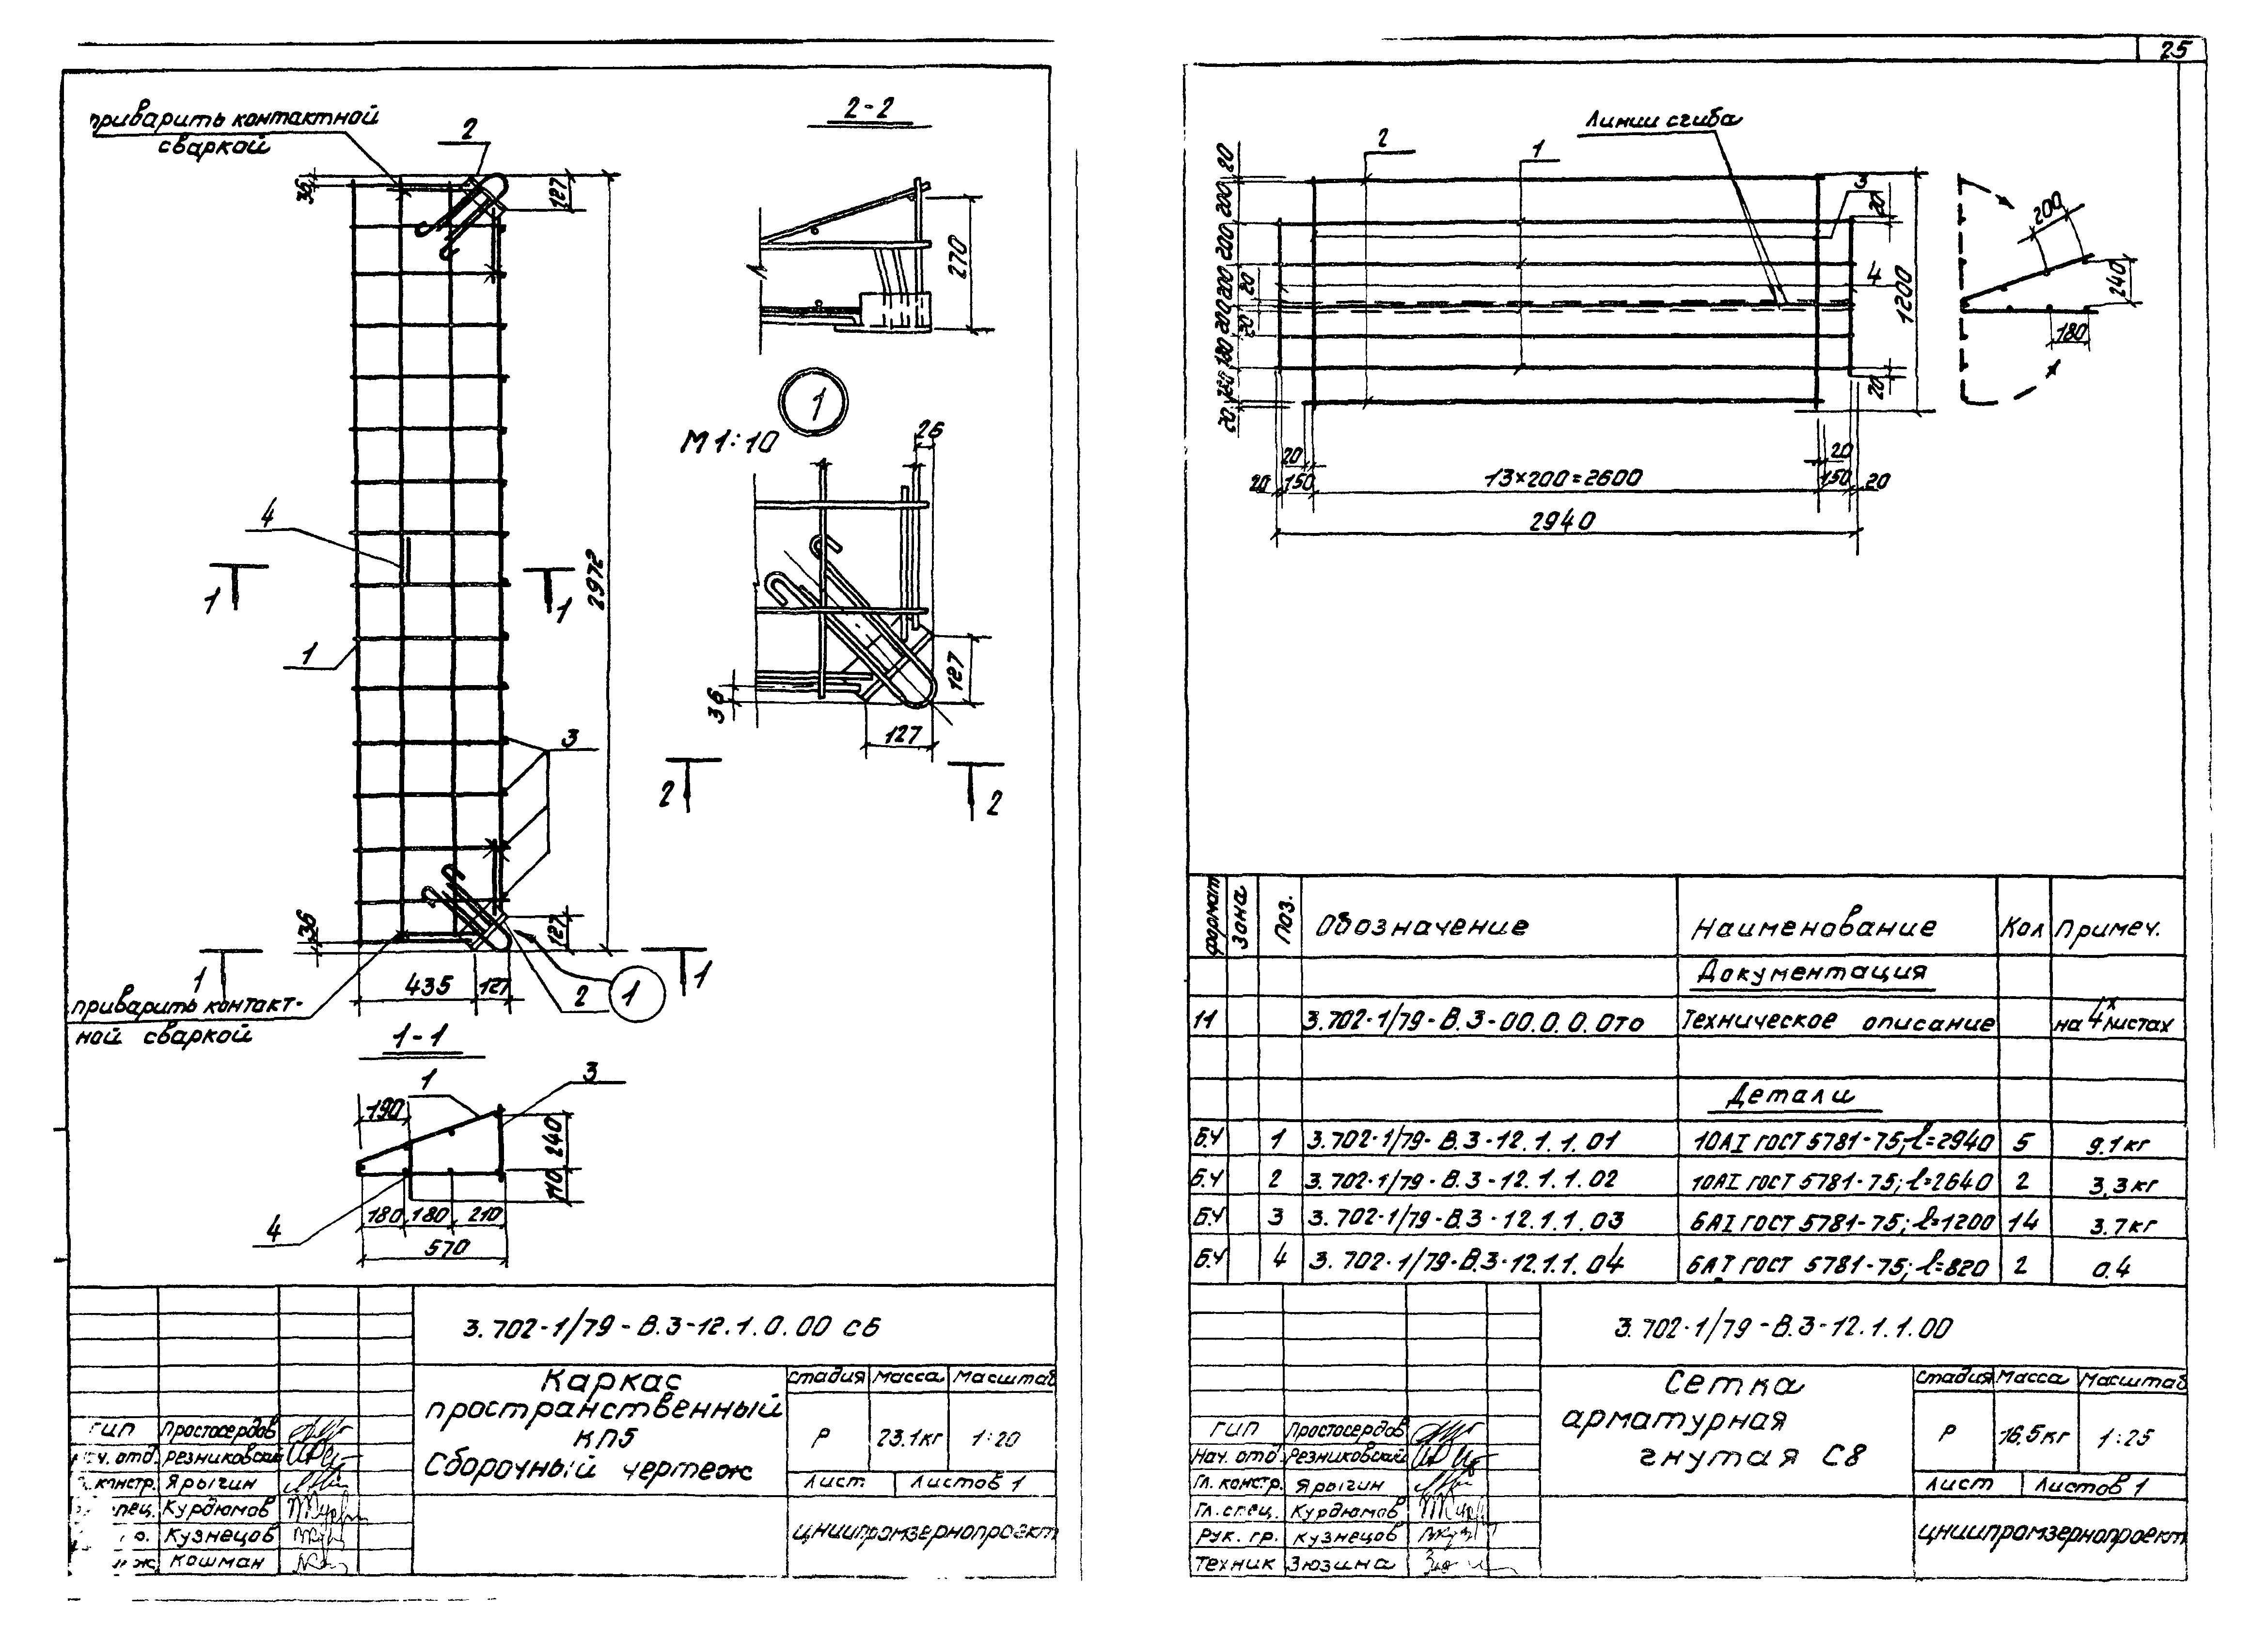 приварить контактной
сваркой
2
36
127
2972
4
1
1
1
3
36
127
1
1
435
127
2
1
приварить контакт-
ной сваркой
1-1
1
3
190
240
110
4
180
180
210
570
2-2
270
1
М 1:10
26
127
36
127
2
2
3.702-1/79-В.3-12.1.0.00 СБ
Каркас
пространственный
КП5
Сборочный чертеж
Стадия
Масса
Масштаб
Р
23.1кг
1:20
Лист
Листов 1
ЦНИИпромзернопроект
ГИП Простосердов
отд. Резниковский
констр. Ярыгин
пец. Курдюмов
Кузнецов
Кошман
25
Линии сгиба
2
1
3
4
20
200
200
200
200
180
180
20
20
20
20
20
1200
200
240
180
20
20
20
150
13×200=2600
150
20
2940
Формат
Зона
Поз.
Обозначение
Наименование
Кол
Примеч.
Документация
11 3.702-1/79-В.3-00.0.0.0ТО Техническое описание на 4х листах
Детали
Б.Ч 1 3.702-1/79-В.3-12.1.1.01 10АI ГОСТ 5781-75; l=2940 5 9.1кг
Б.Ч 2 3.702-1/79-В.3-12.1.1.02 10АI ГОСТ 5781-75; l=2640 2 3,3кг
Б.Ч 3 3.702-1/79-В.3-12.1.1.03 6АI ГОСТ 5781-75; l=1200 14 3.7кг
Б.Ч 4 3.702-1/79-В.3-12.1.1.04 6АI ГОСТ 5781-75; l=820 2 0.4
3.702-1/79-В.3-12.1.1.00
Сетка
арматурная
гнутая С8
Стадия
Масса
Масштаб
Р
16,5кг
1:25
Лист
Листов 1
ЦНИИпромзернопроект
ГИП Простосердов
Нач. отд Резниковский
Гл. констр. Ярыгин
Гл. спец. Курдюмов
Рук. гр. Кузнецов
Техник Зюзина